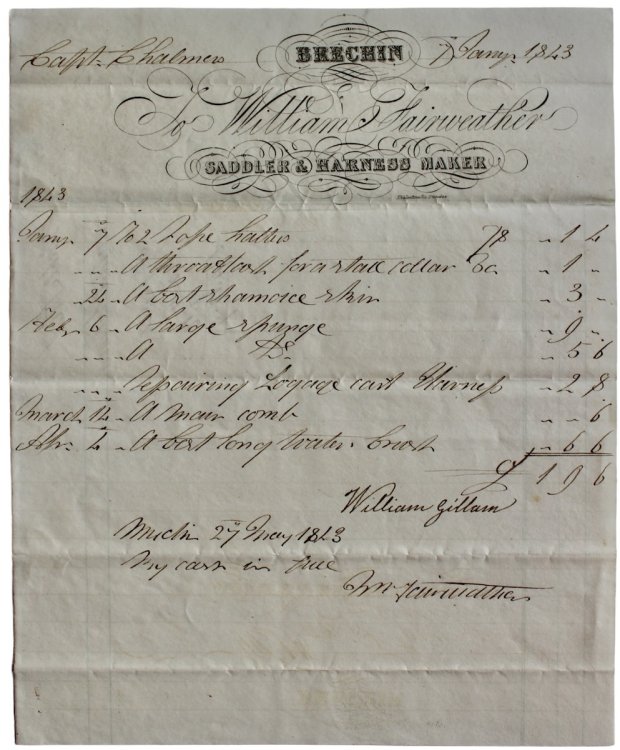 Capt. Chalmers BRECHIN 7 Jany. 1843
To William Fairweather
SADDLER & HARNESS MAKER
1843
Jany. 7 To 2 rope halters 78 " 1 4
" " " A throat last for a stall collar &c " 1 "
" 24 " A best shamoice skin " 3 "
Feby 6 " A large spunge " 9 "
" " " A Do. " 5 6
" " " repairing Logage cart Harness " 2 8
March 14 " A main comb " " 6
Apr. 4 " A best long water brush " 6 6
£ 1 9 6
William Gillam
27 May 1843
By cash in full
Wm Fairweather